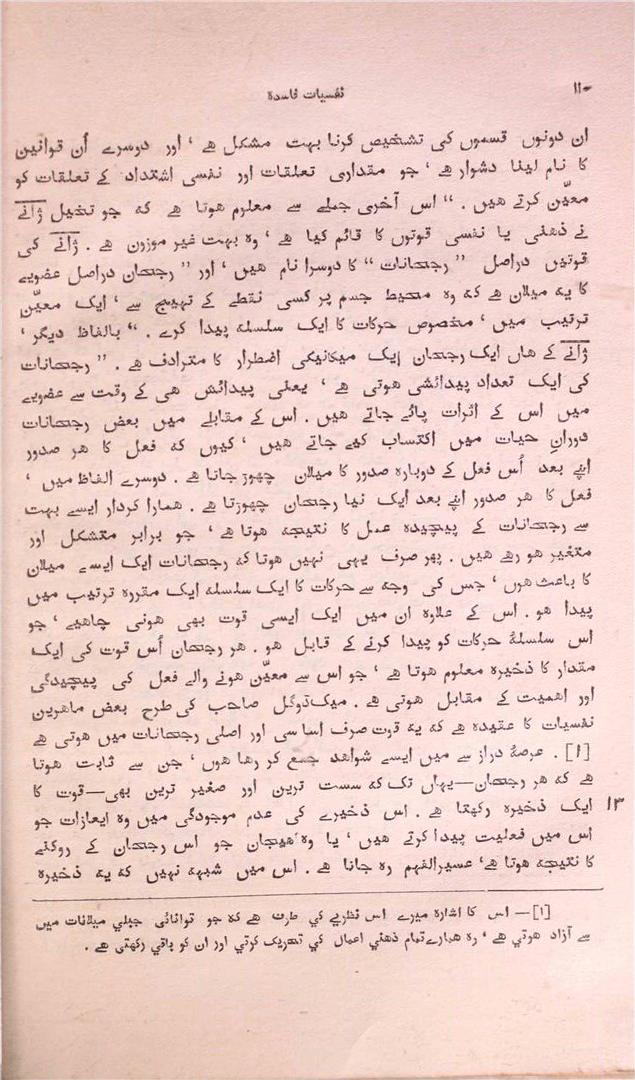 ۱۱۰
نفسیات فاسدہ
ان دونوں قسموں کی تشخیص کرنا بہت مشکل ہے ‘ اور دوسرے اُن قوانین
کا نام لینا دشوار ہے ‘ جو مقداری تعلقات اور نفسی اشتداد کے تعلقات کو
معیّن کرتے ہیں . “ اس آخری جملے سے معلوم ہوتا ہے کہ جو تخیل ژانے
نے ذہنی یا نفسی قوتوں کا قائم کیا ہے ‘ وہ بہت غیر موزون ہے . ژانے کی
قوتیں دراصل ” رجحانات “ کا دوسرا نام ہیں ‘ اور ” رجحان دراصل عضویے
کا یہ میلان ہے کہ وہ محیط جسم پر کسی نقطے کے تہیج سے ‘ ایک معیّن
ترتیب میں ‘ مخصوص حرکات کا ایک سلسلہ پیدا کرے . “ بالفاظ دیگر ‘
ژانے کے ہاں ایک رجحان ایک میکانیکی اضطرار کا مترادف ہے . ” رجحانات
کی ایک تعداد پیدائشی ہوتی ہے ‘ یعنی پیدائش ہی کے وقت سے عضویے
میں اس کے اثرات پائے جاتے ہیں . اس کے مقابلے میں بعض رجحانات
دورانِ حیات میں اکتساب کیے جاتے ہیں ‘ کیوں کہ فعل کا ہر صدور
اپنے بعد اُس فعل کے دوبارہ صدور کا میلان چھوڑ جاتا ہے . دوسرے الفاظ میں ‘
فعل کا ہر صدور اپنے بعد ایک نیا رجحان چھوڑتا ہے . ہمارا کردار ایسے بہت
سے رجحانات کے پیچیدہ عمل کا نتیجہ ہوتا ہے ‘ جو برابر متشکل اور
متغیر ہو رہے ہیں . پھر صرف یہی نہیں ہوتا کہ رجحانات ایک ایسے میلان
کا باعث ہوں ‘ جس کی وجہ سے حرکات کا ایک سلسلہ ایک مقررہ ترتیب میں
پیدا ہو . اس کے علاوہ ان میں ایک ایسی قوت بھی ہونی چاہیے ‘ جو
اس سلسلۂ حرکات کو پیدا کرنے کے قابل ہو . ہر رجحان اُس قوت کی ایک
مقدار کا ذخیرہ معلوم ہوتا ہے ‘ جو اس سے معیّن ہونے والے فعل کی پیچیدگی
اور اہمیت کے مقابل ہوتی ہے . میکڈوگل صاحب کی طرح بعض ماہرین
نفسیات کا عقیدہ ہے کہ یہ قوت صرف اساسی اور اصلی رجحانات میں ہوتی ہے
[۱] . عرصۂ دراز سے میں ایسے شواہد جمع کر رہا ہوں ‘ جن سے ثابت ہوتا
ہے کہ ہر رجحان—یہاں تک کہ سست ترین اور صغیر ترین بھی—قوت کا
ایک ذخیرہ رکھتا ہے . اس ذخیرے کی عدم موجودگی میں وہ ایعازات جو
۱۳
اس میں فعلیت پیدا کرتے ہیں ‘ یا وہ ہیجان جو اس رجحان کے روکنے
کا نتیجہ ہوتا ہے ‘ عسیرالفہم رہ جاتا ہے . اس میں شبہہ نہیں کہ یہ ذخیرہ
[۱] — اس کا اشارہ میرے اس نظریے کی طرف ہے کہ جو توانائی جبلی میلانات میں
سے آزاد ہوتی ہے ‘ وہ ہمارے تمام ذہنی اعمال کی تحریک کرتی اور ان کو باقی رکھتی ہے .